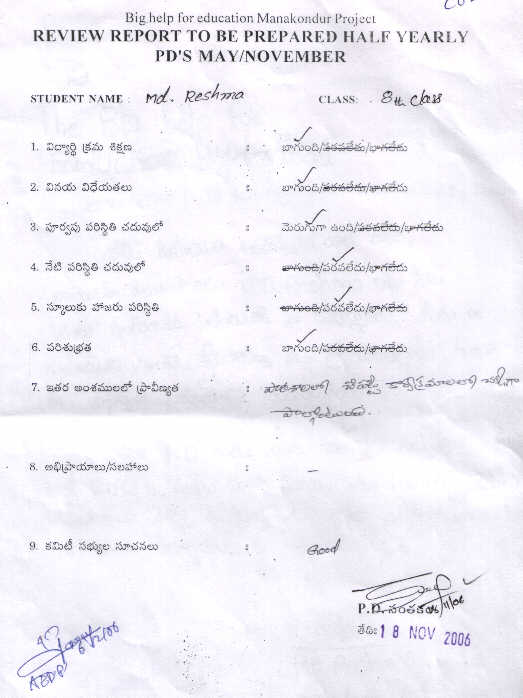 Big help for education Manakondur Project
REVIEW REPORT TO BE PREPARED HALF YEARLY
PD'S MAY/NOVEMBER
STUDENT NAME : Md. Reshma CLASS: . 8th Class
1. విద్యార్థి క్రమ శిక్షణ : బాగుంది/పరవలేదు/భాగలేదు
2. వినయ విధేయతలు : బాగుంది/పరవలేదు/భాగలేదు
3. పూర్వపు పరిస్థితి చదువులో : మెరుగుగా ఉంది/పరవలేదు/భాగలేదు
4. నేటి పరిస్థితి చదువులో : బాగుంది/పరవలేదు/భాగలేదు
5. స్కూలుకు హాజరు పరిస్థితి : బాగుంది/పరవలేదు/భాగలేదు
6. పరిశుభ్రత : బాగుంది/పరవలేదు/భాగలేదు
7. ఇతర అంశములలో ప్రావీణ్యత : పాఠశాలలో కార్యక్రమాలలో
8. అభిప్రాయాలు/సలహాలు : –
9. కమిటీ సభ్యుల సూచనలు : Good
P.D. సంతకం
తేది: 18 NOV 2006